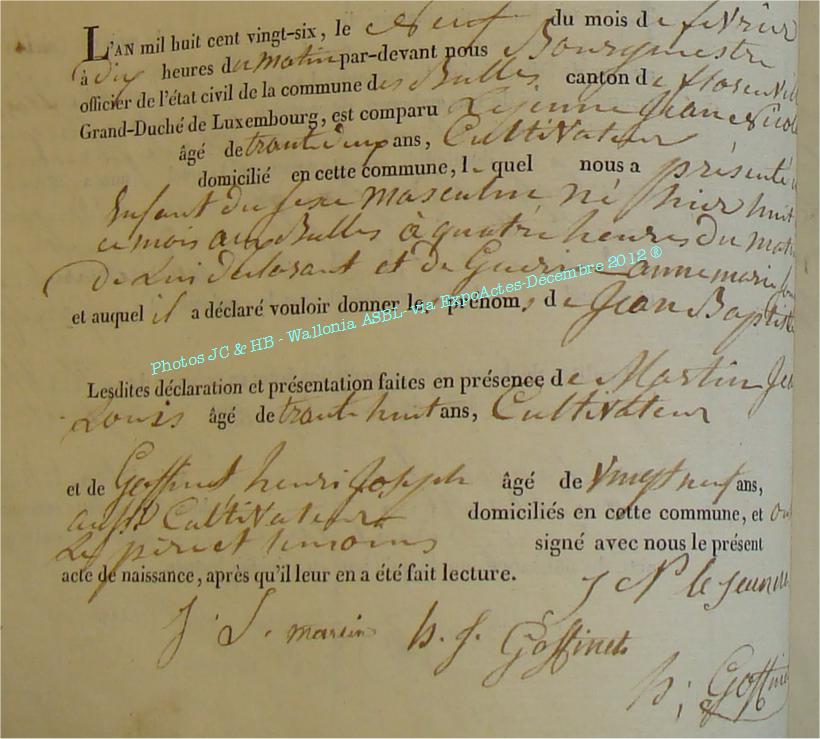 L'AN mil huit cent vingt-six, le neuf du mois de fevrier
à dix heures du matin par-devant nous Bourgmestre
officier de l'état civil de la commune des Bulles canton de florenvill
Grand-Duché de Luxembourg, est comparu Lejeune Jean Nicol
âgé de trante deux ans, Cultivateur
domicilié en cette commune, le quel nous a présenté
Enfant du sexe masculin né hier huit
ce mois aux Bulles à quatre heures du mat
de Lui declarant et de annemarie
et auquel il a déclaré vouloir donner les prénoms de Jean Baptiste
Photos JC & HB - Wallonia ASBL- via ExpoActes-Décembre 2012 ®
Lesdites déclaration et présentation faites en présence de Martin Jea
Louis âgé de trante huit ans, Cultivateur
et de Goffinet henri Joseph âgé de vingt neuf ans,
aussi Cultivateur domiciliés en cette commune, et on
Les pere et temoins signé avec nous le présent
acte de naissance, après qu'il leur en a été fait lecture.
J N le jeune
J. L. martin h. J. Goffinet
h; Goffinet